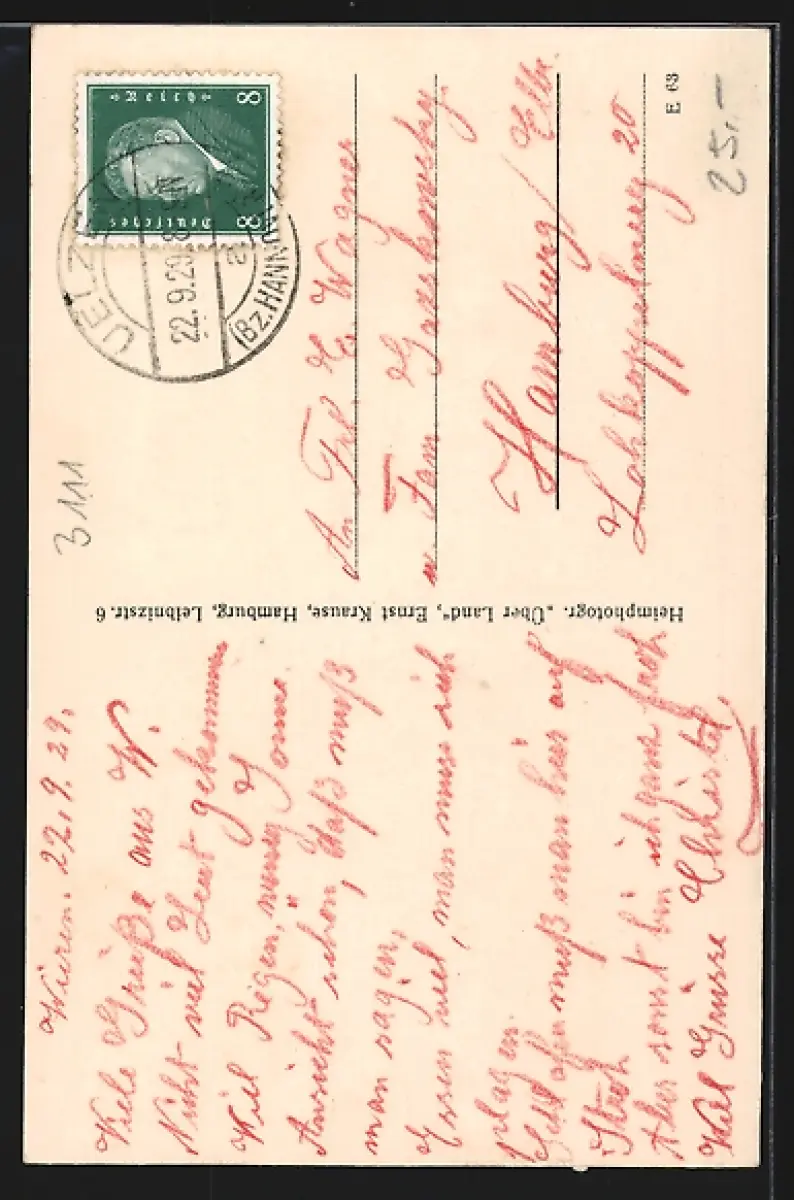 Wieren. 22.9.29.
Viele Grüße aus W.
Nicht viel Leut gekommen
Viel Regen, wenig Sonne.
Aussicht schön, daß muß
man sagen,
Essen viel, man muss sich
plagen.
Schlafen muß man hier auf
Stroh
Aber sonst bin ich ganz froh
Viel Grüsse Christel.
Heimphotogr. „Über Land", Ernst Krause, Hamburg, Leibnizstr. 6
3111
8 Deutsches 8
8 Reich 8
UELZ
22.9.29.8
a
(Bz. HANNOV
An Frl. E. Wagner
Fam.
Hamburg / Elbe.
20
E 63
25.-